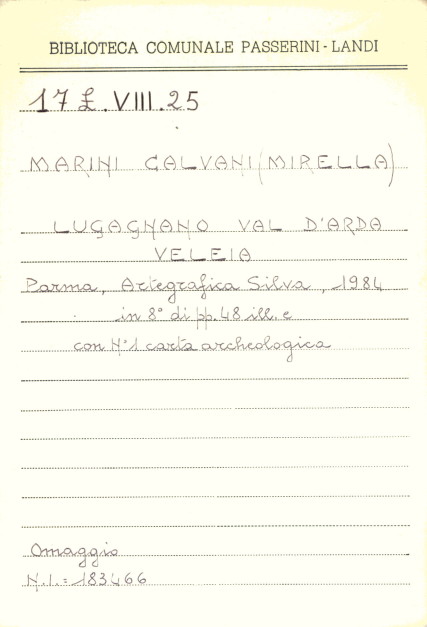 BIBLIOTECA COMUNALE PASSERINI - LANDI
17 £.VIII.25
MARINI CALVANI (MIRELLA)
LUGAGNANO VAL D'ARDA
VELEIA
Parma, Artegrafica Silva, 1984
in 8° di pp. 48 ill. e
con N°1 carta archeologica
Omaggio
N.I.= 183466